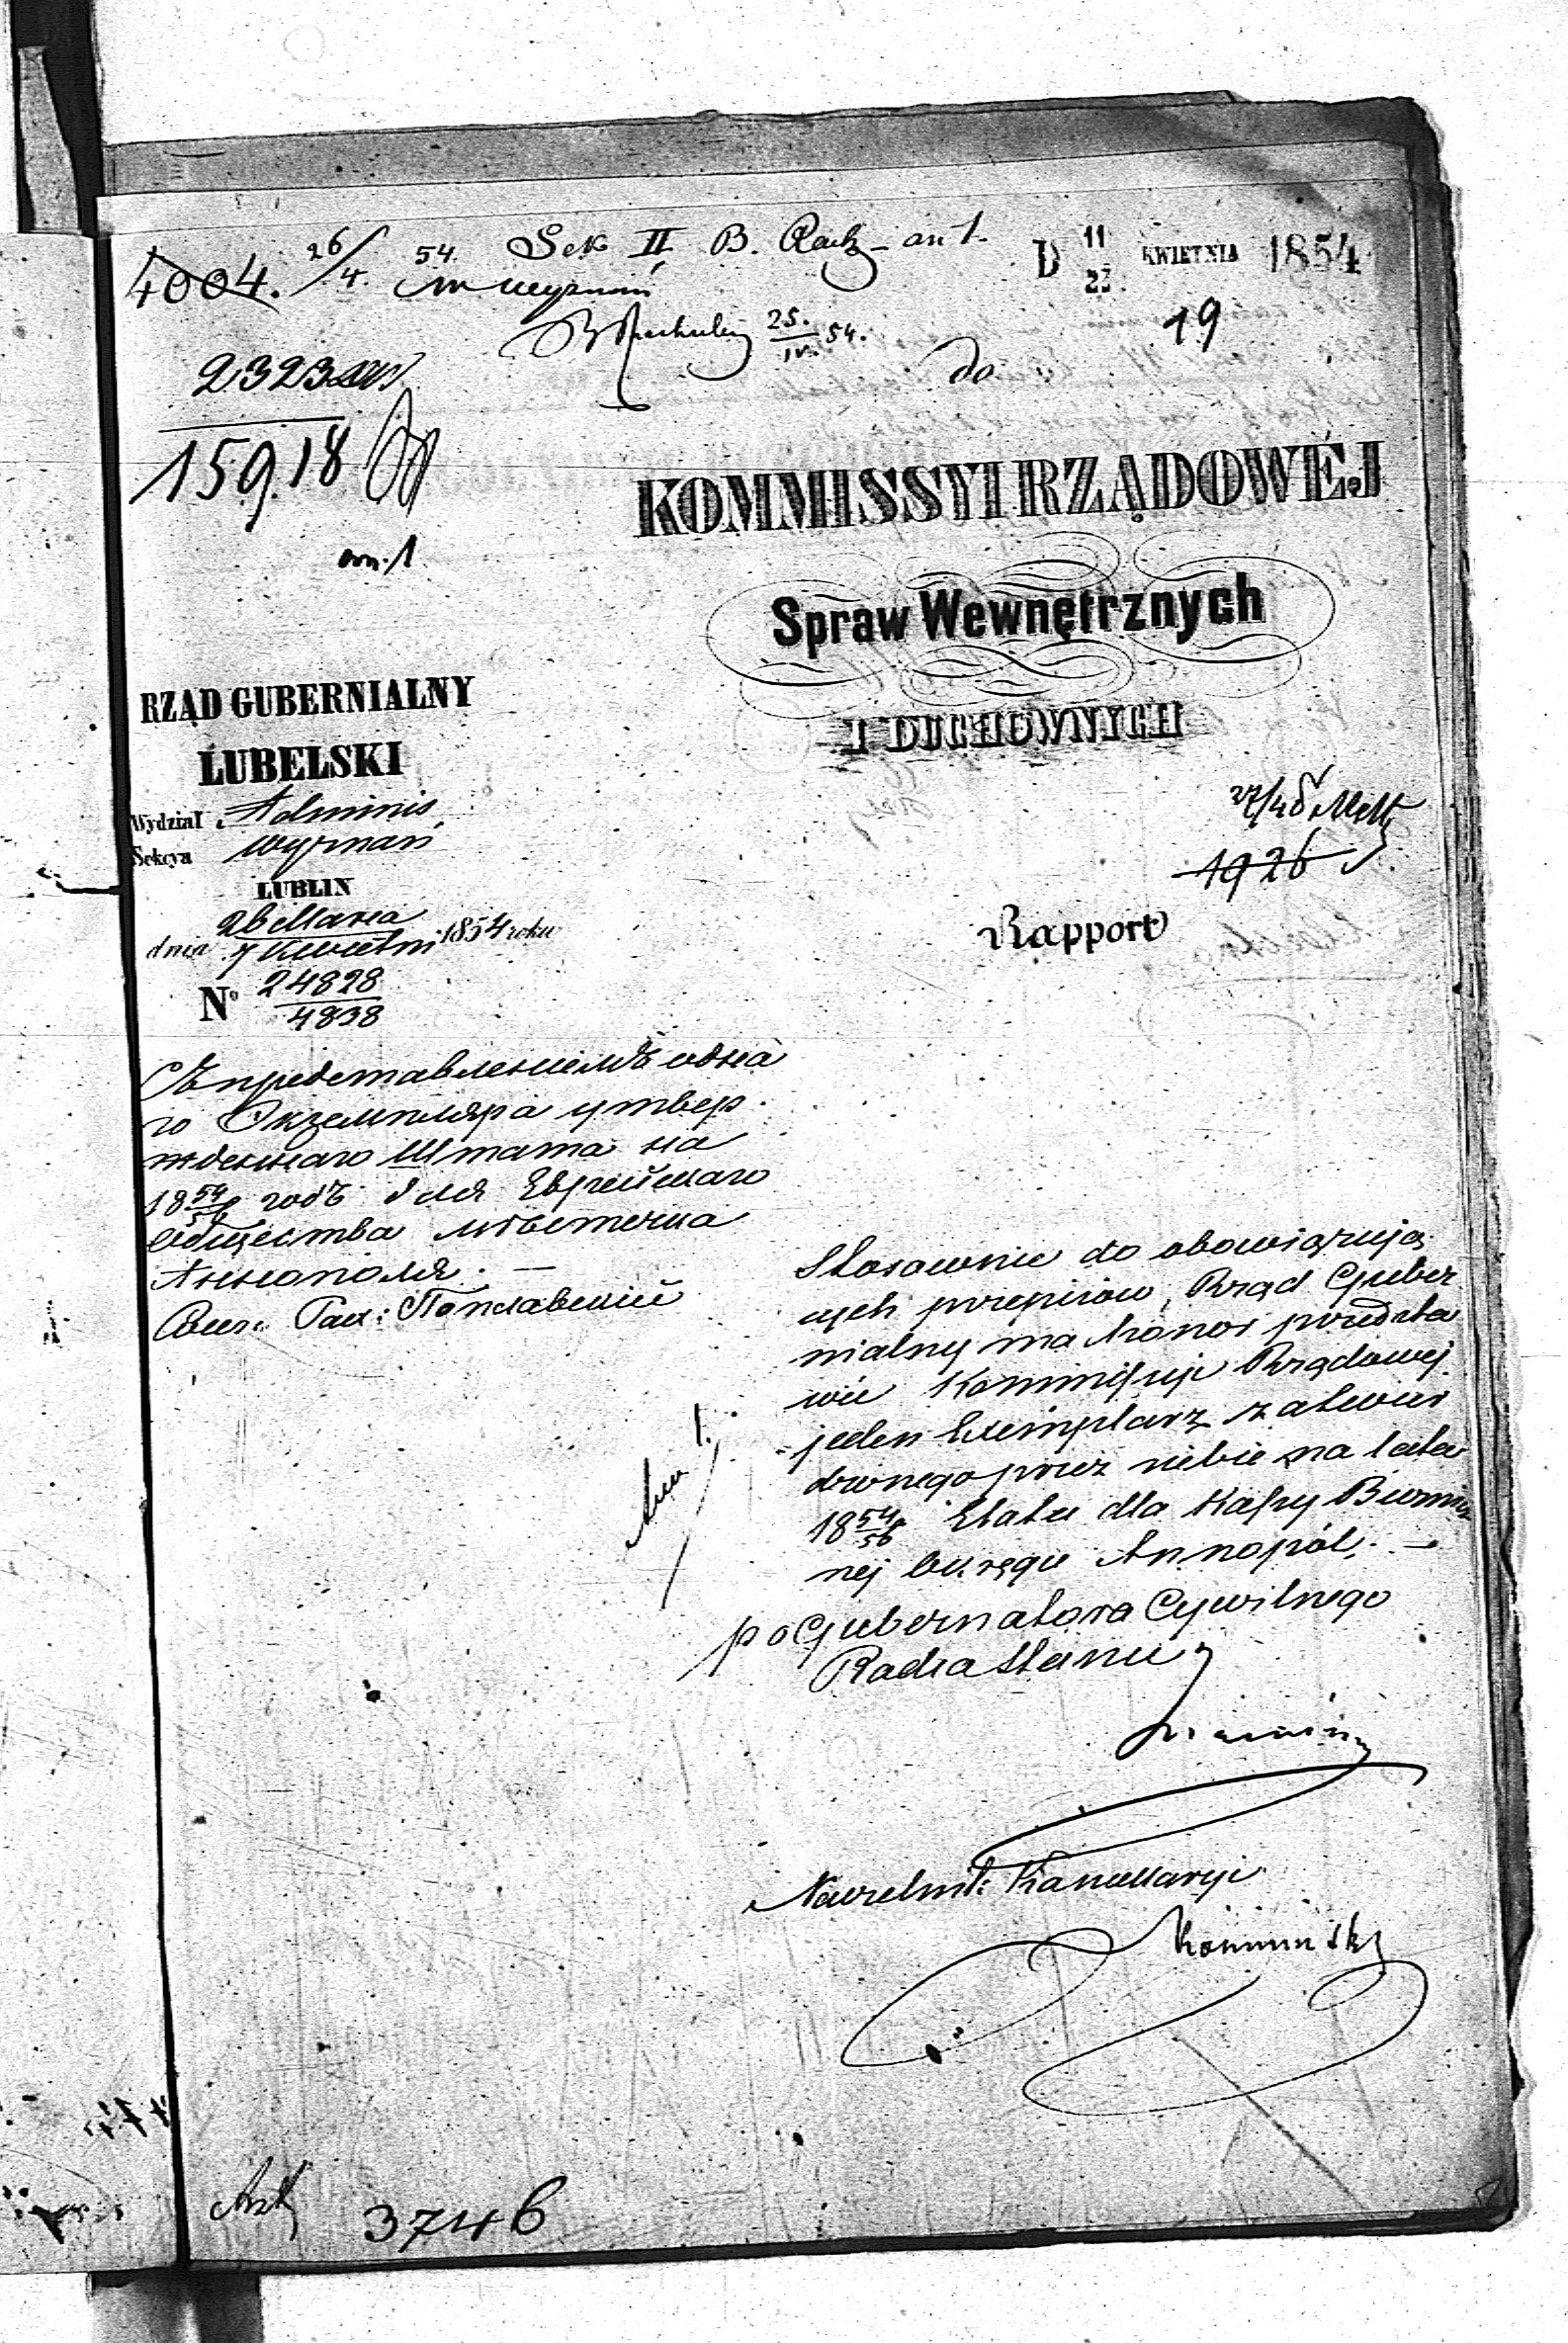 4004. 26/4. 54. Sek II B. Rach an 1.
wyznań
25./IV. 54.
D 11/23. KWIETNIA 1854
19
do
2323
15918
an. 1
KOMMISSYI RZĄDOWÉJ
Spraw Wewnętrznych
I DUCHOWNYCH
RZĄD GUBERNIALNY
LUBELSKI
Wydział Adminis
Sekcya wyznań
LUBLIN
dnia 26 Marca/7 Kwietni 1854 roku
N° 24828/4838
27/4
1926
Rapport
Съ представленіемъ одна
го Экземпляра утвер
жденнаго Штата на
18 54/56 годъ для Еврейскаго
Общества мѣстечка
Аннополя. —
Stosownie do obowiązują
cych przepisów, Rząd Guber
nialny ma honor przedsta
wić Kommissyi Rządowej
jeden Exemplarz zatwier
dzonego przez siebie na lata
18 54/56 Etatu dla Kassy Bóżnicz
nej Okręgu Annopól. —
Ann 1.
po Gubernatora Cywilnego
Radca Stanu
Naczelnik Kancellaryi
3746